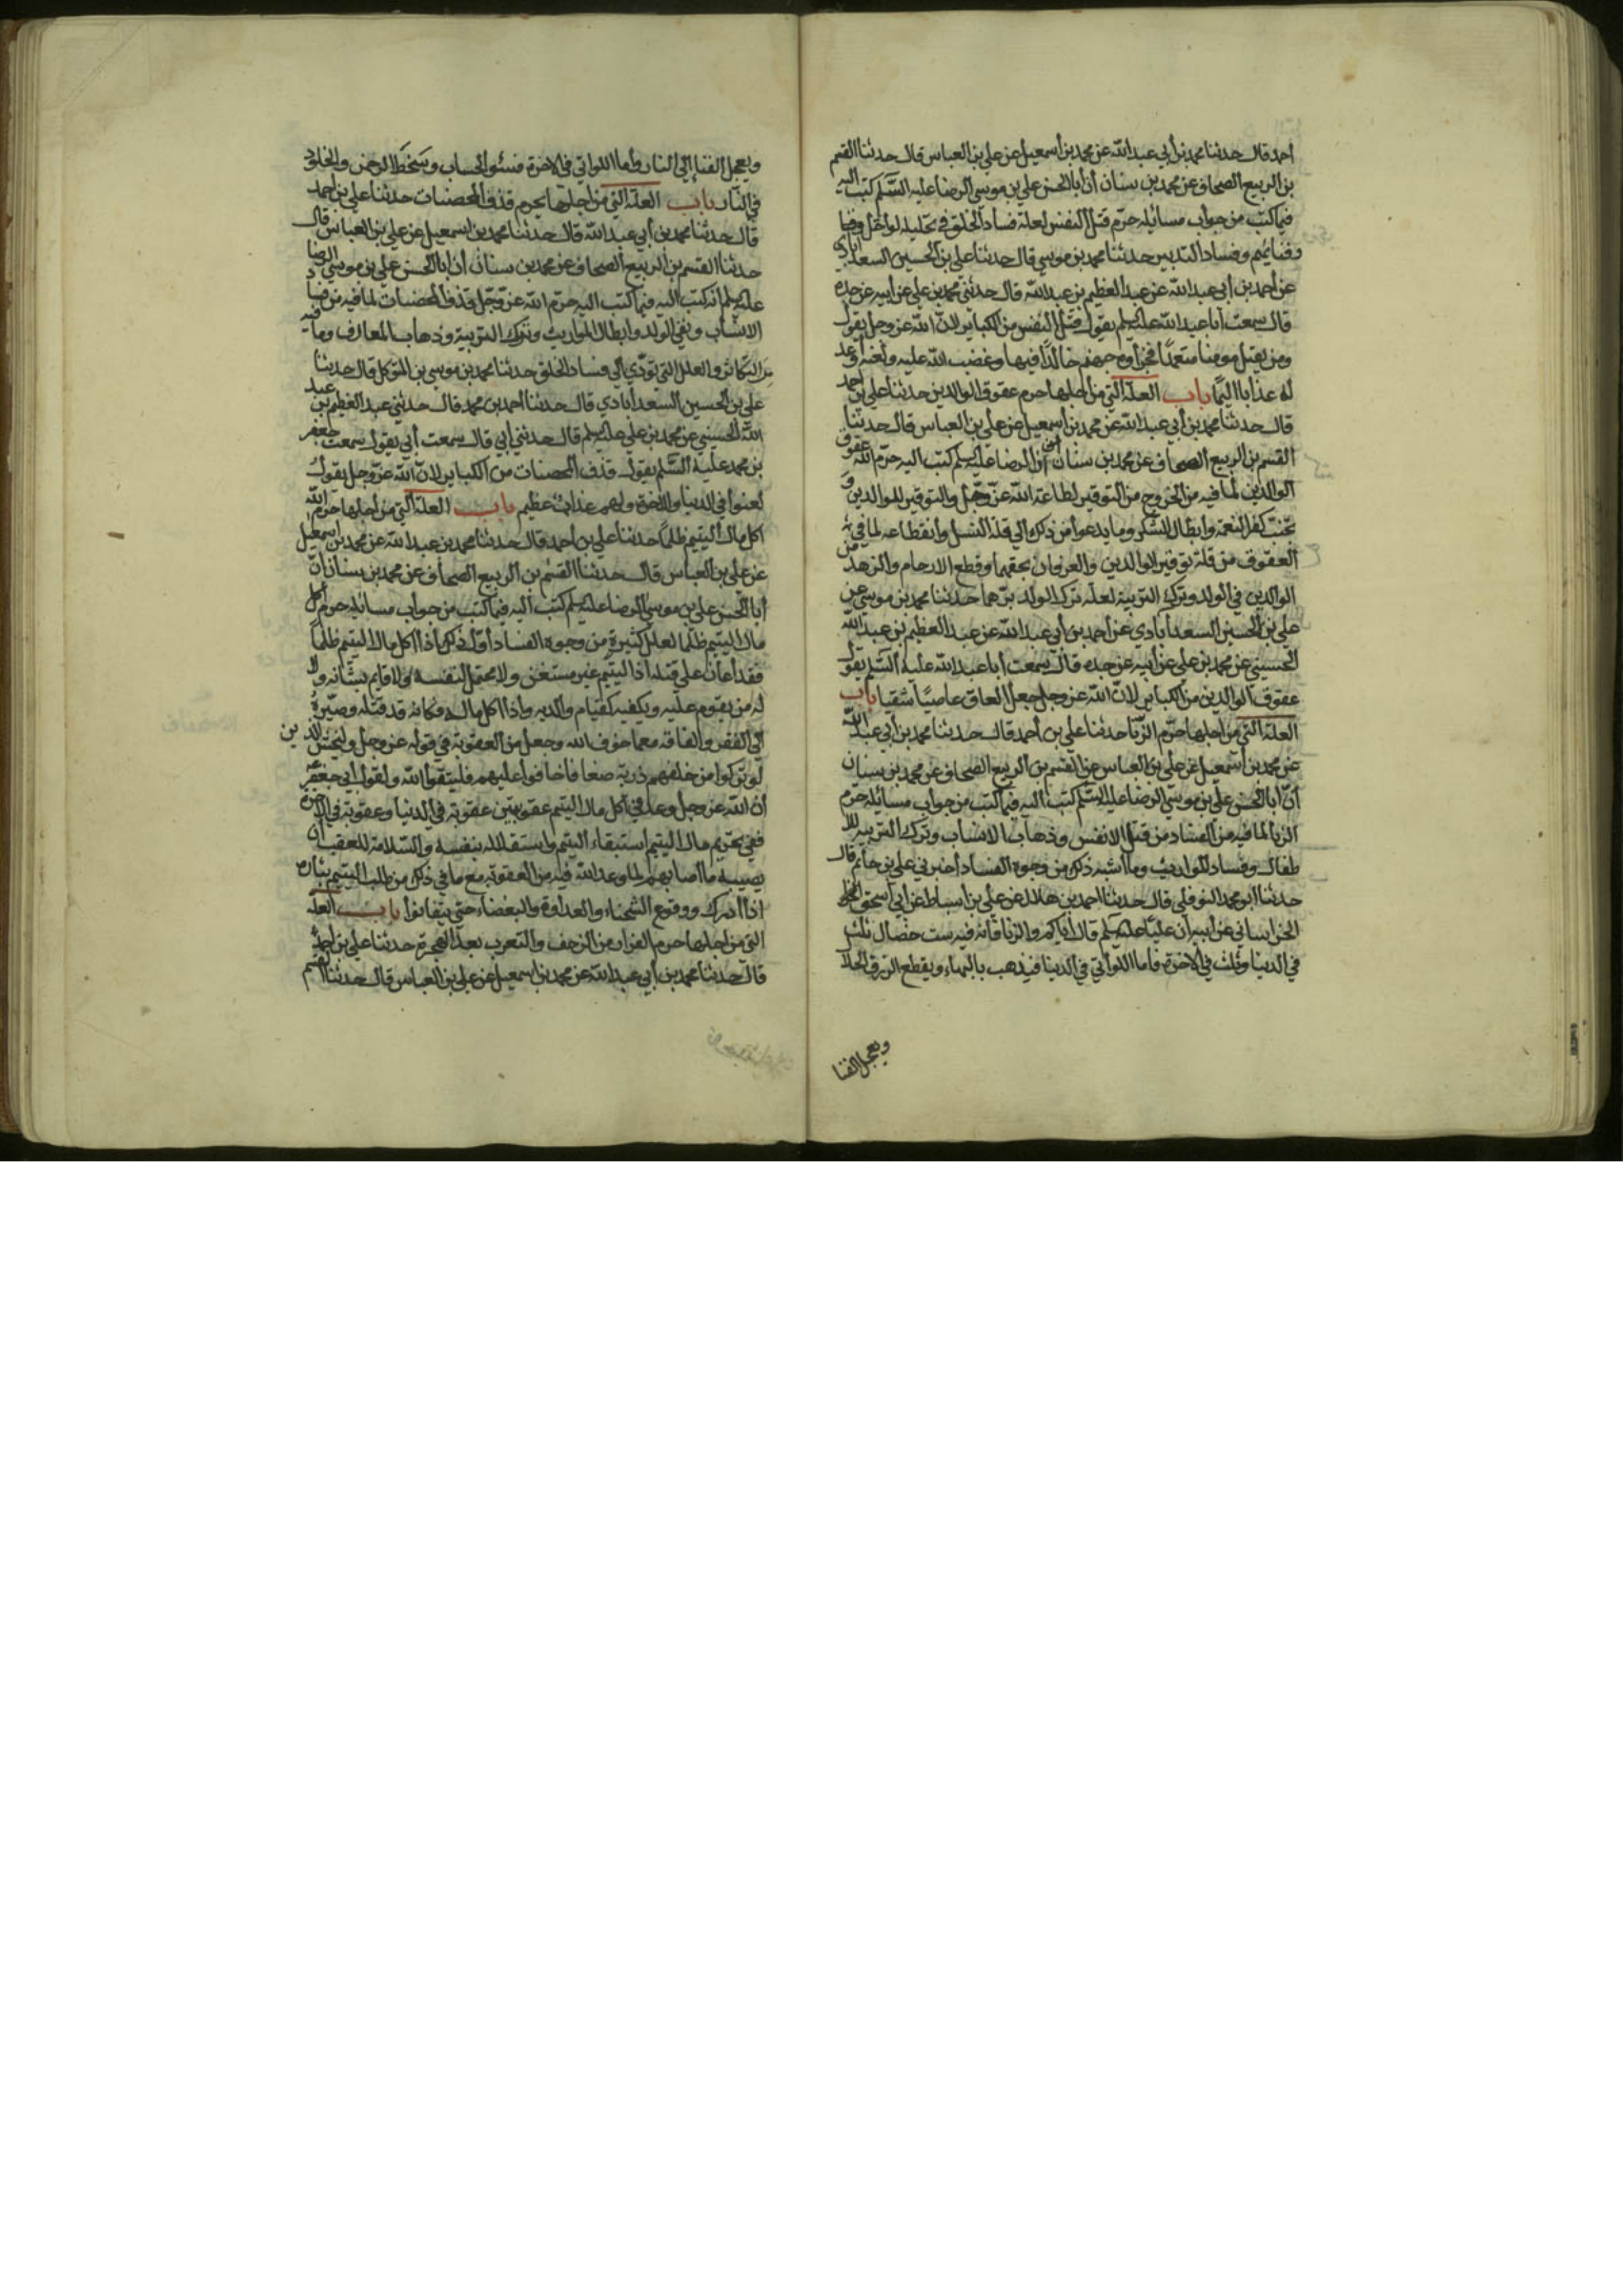 احمد قال حدثنا محمد بن أبي عبد الله عن محمد بن أسمعيل عن علي بن العباس قال حدثنا القسم
بن الربيع الصحاف عن محمد بن سنان أن أبا الحسن علي بن موسي الرضا عليه السّلم كتب اليه
فيما كتب من جواب مسائله حرّم قتل النفس لعلة فساد الخلق في تحليله لو احل وفنا
وفنايهم وفساد التدبير حدثنا محمد بن موسي قال حدثنا علي بن الحسين السعدابادي
عن أحمد بن أبي عبد الله عن عبد العظيم بن عبد الله قال حدثني محمد بن علي عن أبيه عن جده
قال سمعت أبا عبد الله عليه السلم يقول قتل النفس من الكباير لانّ الله عز وجل يقول
ومن يقتل مومنا متعمدًا فجزاوه جهنم خالدًا فيها وغضب الله عليه ولعنه واعد
له عذابا اليمًا باب العلة التي من أجلها حرم عقوق الوالدين حدثنا علي بن احمد
قال حدثنا محمد بن أبي عبد الله عن محمد بن أسمعيل عن علي بن العباس قال حدثنا
القسم بن الربيع الصحاف عن محمد بن سنان أن الرضا عليه السلم كتب اليه حرّم الله عقوق
الوالدين لما فيه من الخروج من التوقير لطاعة الله عزّ وجّل والتوقير للوالدين و
تجنّب كفر النعمة وابطال الشكر وما يدعوا من ذلك الي قلة النسل وأنقطاعه لما في
العقوق من قلة توقير الوالدين والعرفان بحقهما وقطع الارحام والزهد من
الوالدين في الولد وترك التربية لعلة ترك الولد برّهما حدثنا محمد بن موسي عن
علي بن الحسين السعدأبادي عن أحمد بن أبي عبد الله عن عبد العظيم بن عبد الله
الحسيني عن محمد بن علي عن أبيه عن جده قال سمعت أبا عبد الله عليه السّلم يقول
عقوق الوالدين من الكباير لانّ الله عز وجل جعل العاق عاصيًا شقيا باب
العلة التي من اجلها حرّم الزّنا حدثنا علي بن أحمد قال حدثنا محمد بن أبي عبد الله
عن محمد بن أسمعيل عن علي بن العباس عن القسم بن الربيع الصحاف عن محمد بن سنان
أنّ أبا الحسن علي بن موسي الرضا عليه السّلم كتب اليه فيما كتب من جواب مسائله حرّم
الزنا لما فيه من الفساد من قتل الانفس وذهاب الانساب وترك التربيه للا
طفال وفساد المواريث وما أشبه ذلك من وجوه الفساد أخبرني علي بن حاتم قال
حدثنا أبو محمد النوفلي قال حدثنا أحمد بن هلال عن علي بن أسباط عن أبي أسحق
الخراساني عن أبيه أن عليًا عليه السلم قال أياكم والزنا فانه فيه ست خصال ثلث
في الدنيا وثلث في الاخرة فاما اللواتي في الدنيا فيذهب بالبهاء ويقطع الرزق الحلا
ويعجل الفنا
ويعجل الفنا إلي النار وأما اللواتي في الاخرة فسئو الحساب وسخط الرحمن والخلود
في النّار باب العلة التي من اجلها يحرم قذف المحصنات حدثنا علي بن احمد
قال حدثنا محمد بن أبي عبد الله قال حدثنا محمد بن اسمعيل عن علي بن العباس قال
حدثنا القسم بن الربيع الصحاف عن محمد بن سنان أن ابا الحسن علي بن موسي الرضا
عليه السلم أنه كتب اليه فيما كتب اليه حرّم الله عزّ وجّل قذف المحصنات لما فيه من فساد
الانساب ونفي الولد وابطال المواريث وترك التربية وذهاب المعارف وما فيه
من التكاثر والعلل التي تؤدّي الي فساد الخلق حدثنا محمد بن موسي بن المتوكل قال حدثنا
علي بن الحسين السعدأبادي قال حدثنا احمد بن محمد قال حدثني عبد العظيم بن عبد
الله الحسني عن محمد بن علي عليه السلم قال حدثني أبي قال سمعت أبي يقول سمعت جعفر
بن محمد عليه السّلم يقول قذف المحصنات من الكباير لانّ الله عزّ وجل يقول
لعنوا في الدنيا والاخرة ولهم عذاب عظيم باب العلة التي من أجلها حرّم الله
اكل مال اليتيم ظلماً حدثنا علي بن أحمد قال حدثنا محمد بن عبد الله عن محمد بن اسمعيل
عن علي بن العباس قال حدثنا القسم بن الربيع الصحاف عن محمد بن سنان انّ
أبا الحسن علي بن موسي الرضا عليه السلم كتب اليه فيما كتب من جواب مسائله حرم أكل
مال اليتيم ظلمًا لعلل كثيرة من وجوه الفساد أوّل ذلك أذا أكل مال اليتيم ظلماً
فقد أعان علي قتله أذا اليتيم غير مستغن ولا محتمل لنفسه ولا قايم بشانه ولا
له من يقوم عليه ويكفيه كقيام والديه واذا أكل ماله فكانه قد قتله وصيّره
الي الفقر والفاقه مع ما خوف الله وجعل من العقوبة في قوله عز وجل وليخش الذين
لو تركوا من خلفهم ذرية ضعافا خافوا عليهم فليتقوا الله ولقول أبي جعفر
أن الله عز وجل وعد في أكل مال اليتيم عقوبتين عقوبة في الدنيا وعقوبة في الاخرة
ففي تحريم مال اليتيم استبقاء اليتيم واستقلاله بنفسه والسّلامة للعقب أن
يصيبه ما أصابهم لما وعد الله فيه من العقوبة مع ما في ذلك من طلب اليتيم بثاره
اذا أدرك ووقوع الشحناء والعداوة والبغضاء حتي يتفانوا باب العلة
التي من اجلها حرم الفرار من الزحف والتعرب بعد الهجرة حدثنا علي بن احمد
قال حدثنا محمد بن أبي عبد الله عن محمد بن اسمعيل عن علي بن العباس قال حدثنا القسم